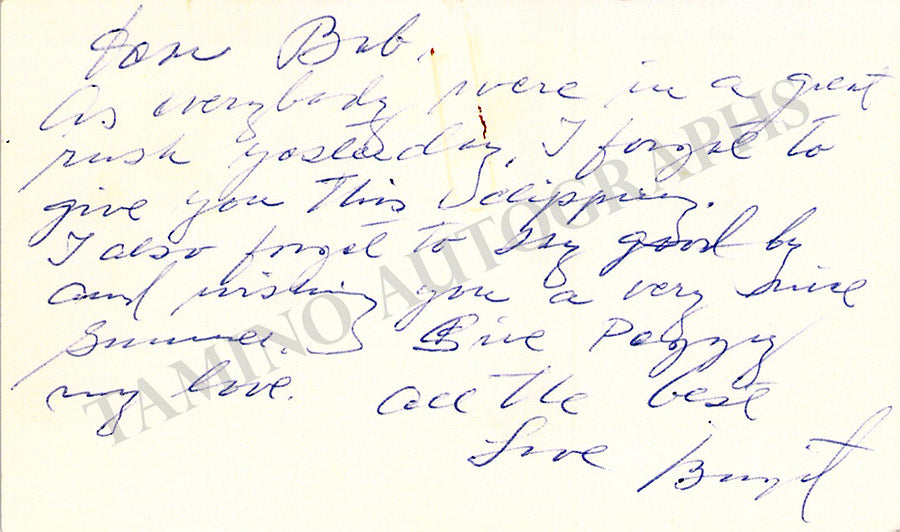 Dear Bob,
As everybody were in a great
rush yesterday, I forgot to
give you this clipping.
I also forgot to say good by
and wishing you a very nice
Summer. Give Peggy
my love. All the best
Love Birgit
TAMINO AUTOGRAPHS